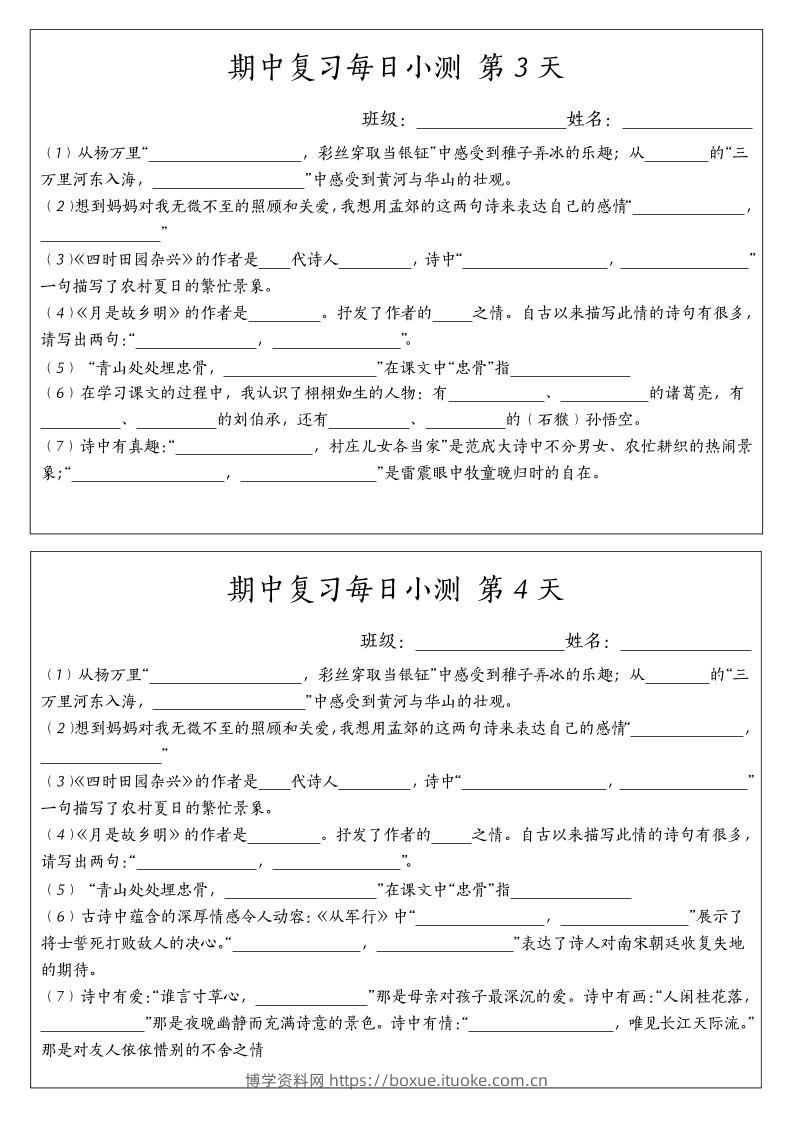 期中复习每日小测 第 3 天
班级：______________姓名：____________
（1）从杨万里“________________，彩丝穿取当银钲”中感受到稚子弄冰的乐趣；从______的“三
万里河东入海，________________”中感受到黄河与华山的壮观。
（2）想到妈妈对我无微不至的照顾和关爱，我想用孟郊的这两句诗来表达自己的感情“____________，
____________”
（3）《四时田园杂兴》的作者是____代诗人________，诗中“______________，______________”
一句描写了农村夏日的繁忙景象。
（4）《月是故乡明》的作者是________。抒发了作者的____之情。自古以来描写此情的诗句有很多，
请写出两句：“____________，____________”。
（5）“青山处处埋忠骨，________________”在课文中“忠骨”指____________
（6）在学习课文的过程中，我认识了栩栩如生的人物：有__________、_________的诸葛亮，有
________、________的刘伯承，还有________、________的（石猴）孙悟空。
（7）诗中有真趣：“______________，村庄儿女各当家”是范成大诗中不分男女、农忙耕织的热闹景
象；“________________，______________”是雷震眼中牧童晚归时的自在。
期中复习每日小测 第 4 天
班级：______________姓名：____________
（1）从杨万里“________________，彩丝穿取当银钲”中感受到稚子弄冰的乐趣；从______的“三
万里河东入海，________________”中感受到黄河与华山的壮观。
（2）想到妈妈对我无微不至的照顾和关爱，我想用孟郊的这两句诗来表达自己的感情“____________，
____________”
（3）《四时田园杂兴》的作者是____代诗人________，诗中“______________，______________”
一句描写了农村夏日的繁忙景象。
（4）《月是故乡明》的作者是________。抒发了作者的____之情。自古以来描写此情的诗句有很多，
请写出两句：“____________，____________”。
（5）“青山处处埋忠骨，________________”在课文中“忠骨”指____________
（6）古诗中蕴含的深厚情感令人动容：《从军行》中“______________，______________”展示了
将士誓死打败敌人的决心。“______________，______________”表达了诗人对南宋朝廷收复失地
的期待。
（7）诗中有爱：“谁言寸草心，____________”那是母亲对孩子最深沉的爱。诗中有画：“人闲桂花落，
____________”那是夜晚幽静而充满诗意的景色。诗中有情：“________________，唯见长江天际流。”
那是对友人依依惜别的不舍之情
博学资料网 https://boxue.ituoke.com.cn